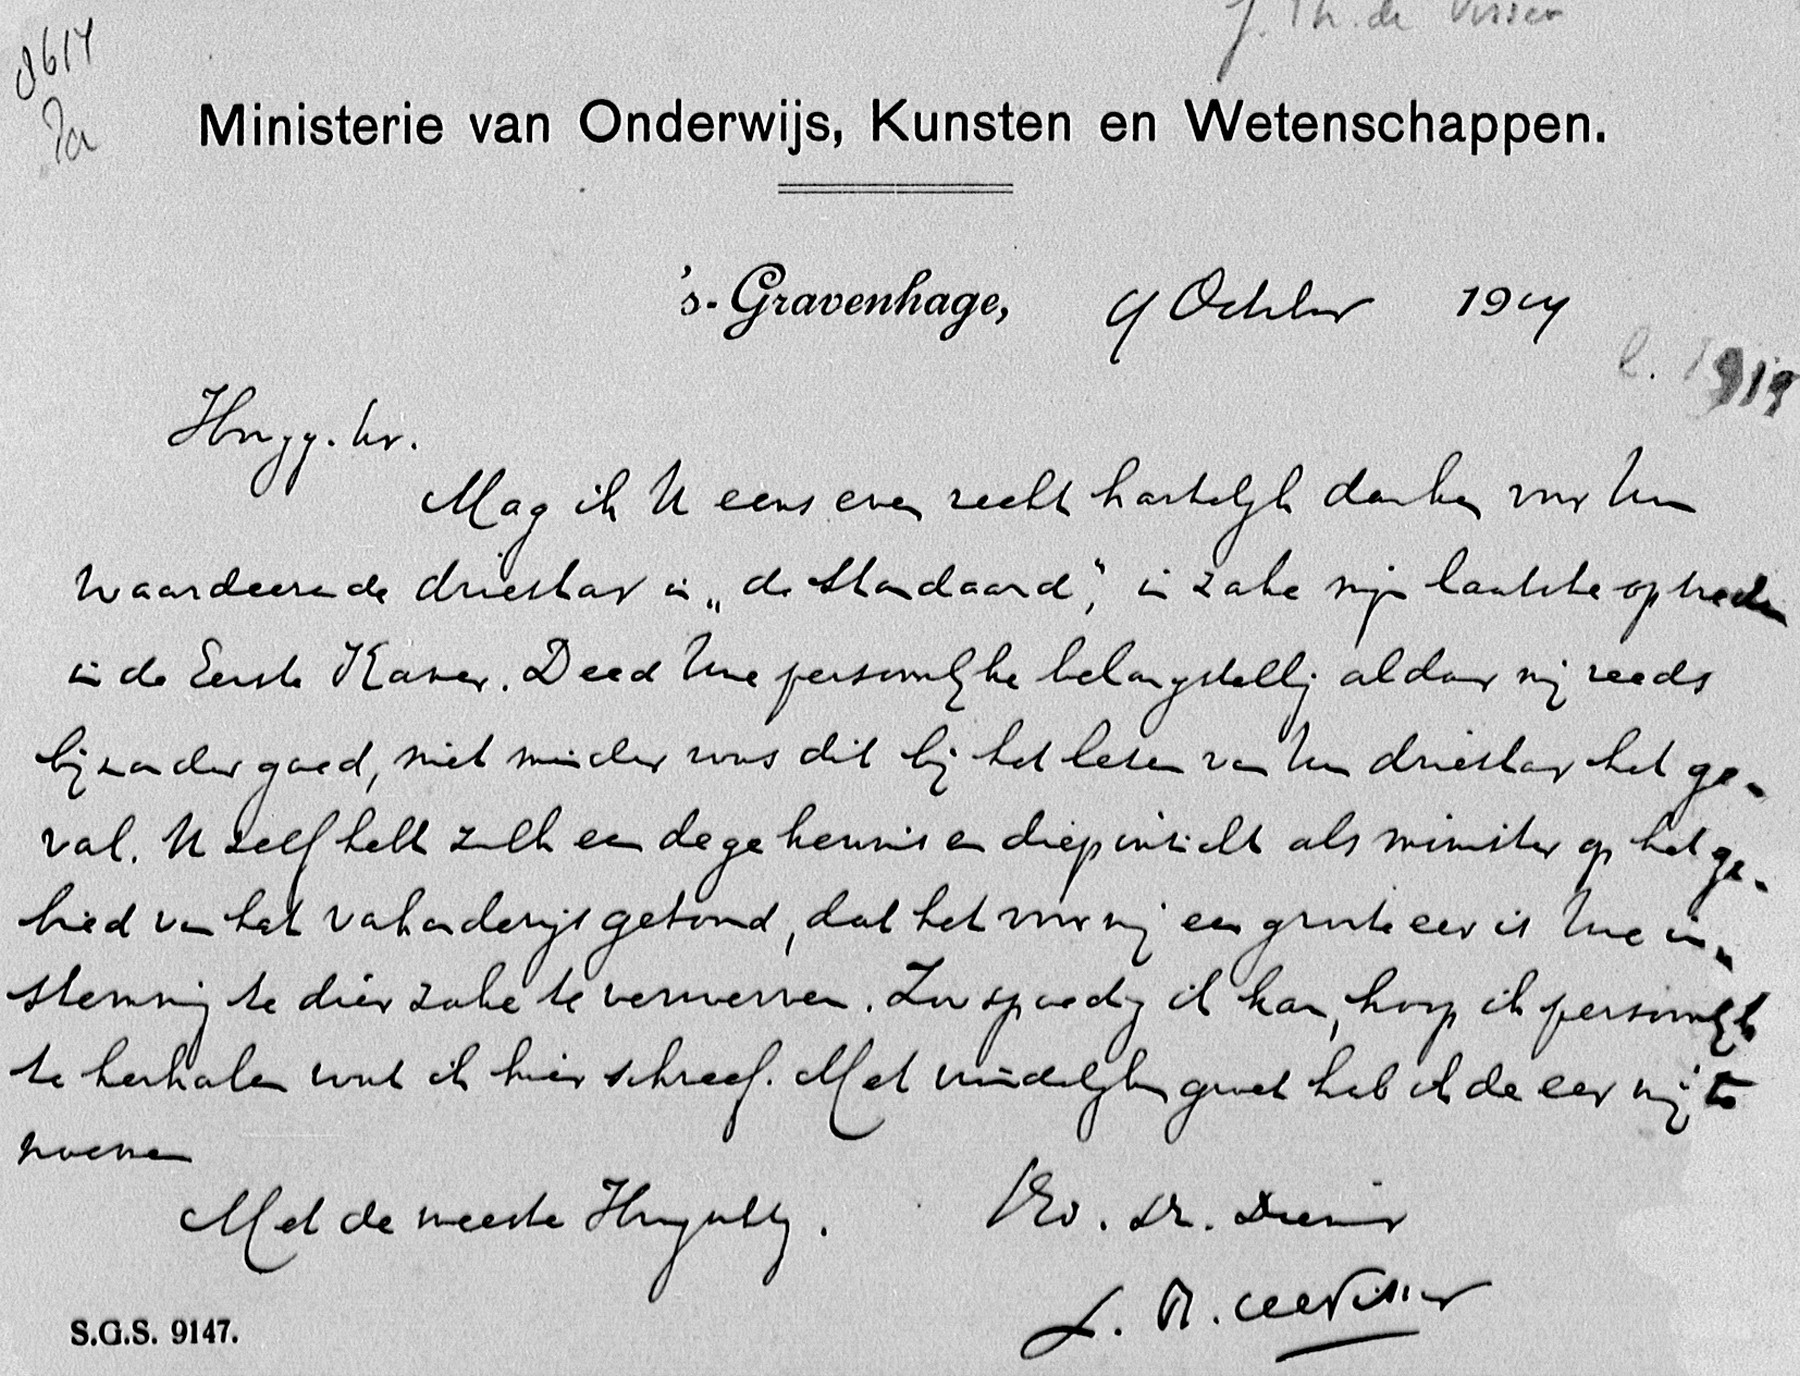 J. Th. de Visser
8614
7a
Ministerie van Onderwijs, Kunsten en Wetenschappen.
's-Gravenhage, 9 October 1919
1919
Hoogg. Hr.
Mag ik U eens even recht hartelijk danken voor Uw
waardeerende driestar in „de Standaard", in zake mijn laatste optreden
in de Eerste Kamer. Deed Uwe persoonlijke belangstelling aldaar mij reeds
bijzonder goed, niet minder was dit bij het lezen van Uw driestar het ge-
val. U zelf hebt zulk een dege kennis en diep inzicht als minister op het ge-
bied van het vakonderwijs getoond, dat het voor mij een groote eer is Uwe in-
stemming te dier zake te verwerven. Zoo spoedig ik kan, hoop ik persoonlijk
te herhalen wat ik hier schreef. Met vriendelijken groet heb ik de eer mij te
noemen
Met de meeste Hoogachtg. Uw. Dw. Dienaar
J. Th. de Visser
S.G.S. 9147.